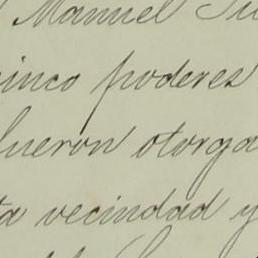 Manuel
cinco poderes
fueron otorga
ta vecindad y